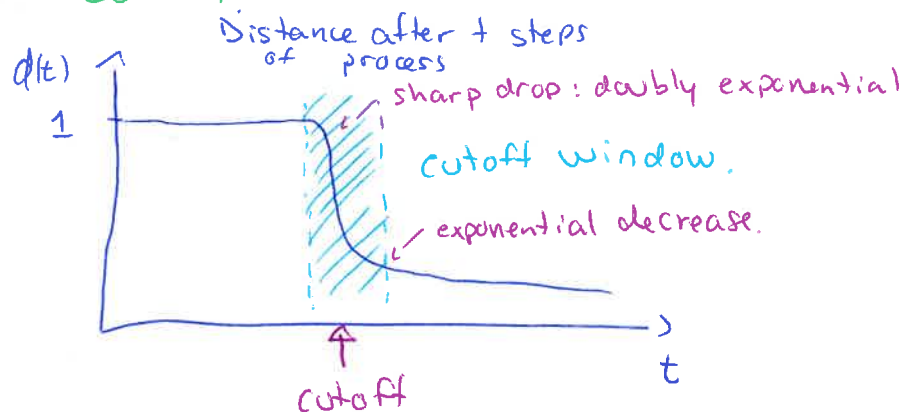 Distance after t steps
of process
d(t)
sharp drop: doubly exponential
1
cutoff window.
exponential decrease.
t
cutoff